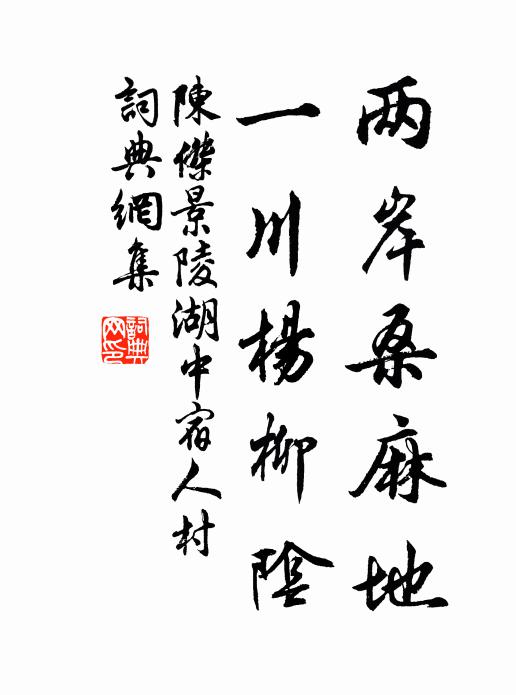 两岸桑麻地
一川楊柳陰
陳傑景陵湖中宿人村
詞典網集
詞典
网印